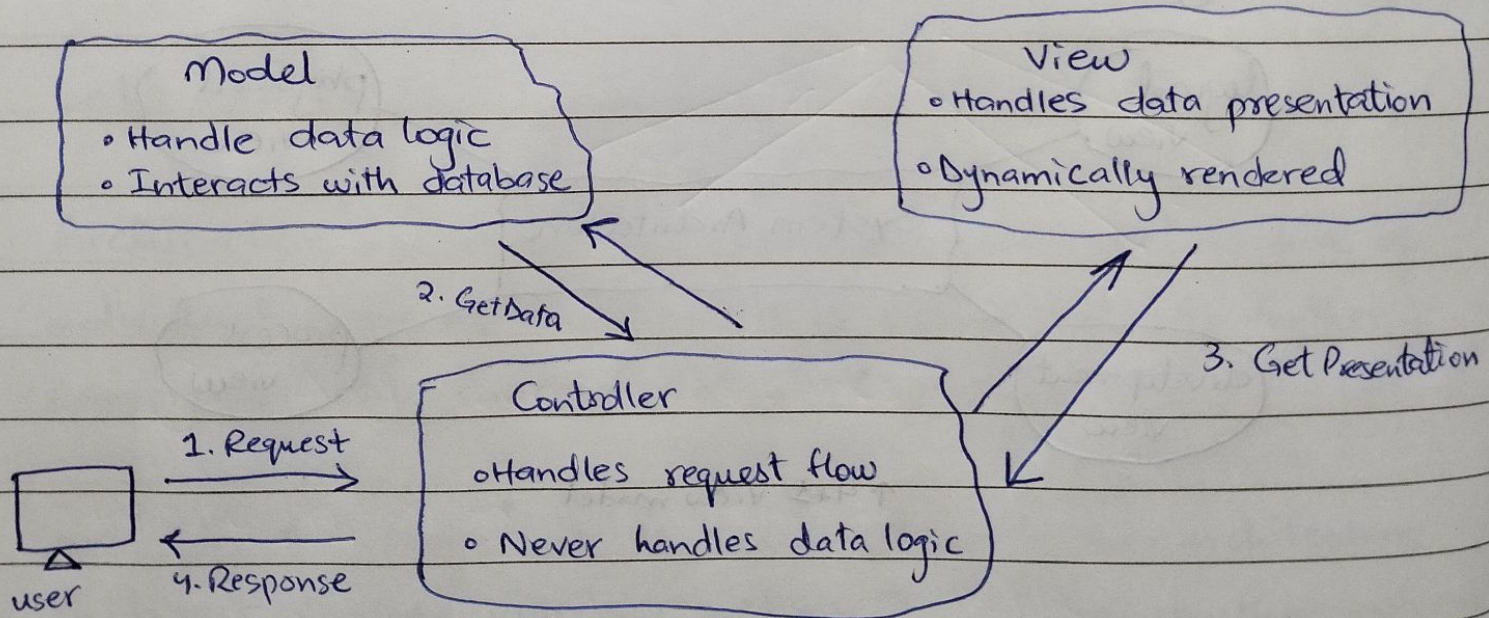 Model
• Handle data logic
• Interacts with database
View
• Handles data presentation
• Dynamically rendered
2. GetData
3. Get Presentation
Controller
• Handles request flow
• Never handles data logic
1. Request
4. Response
user